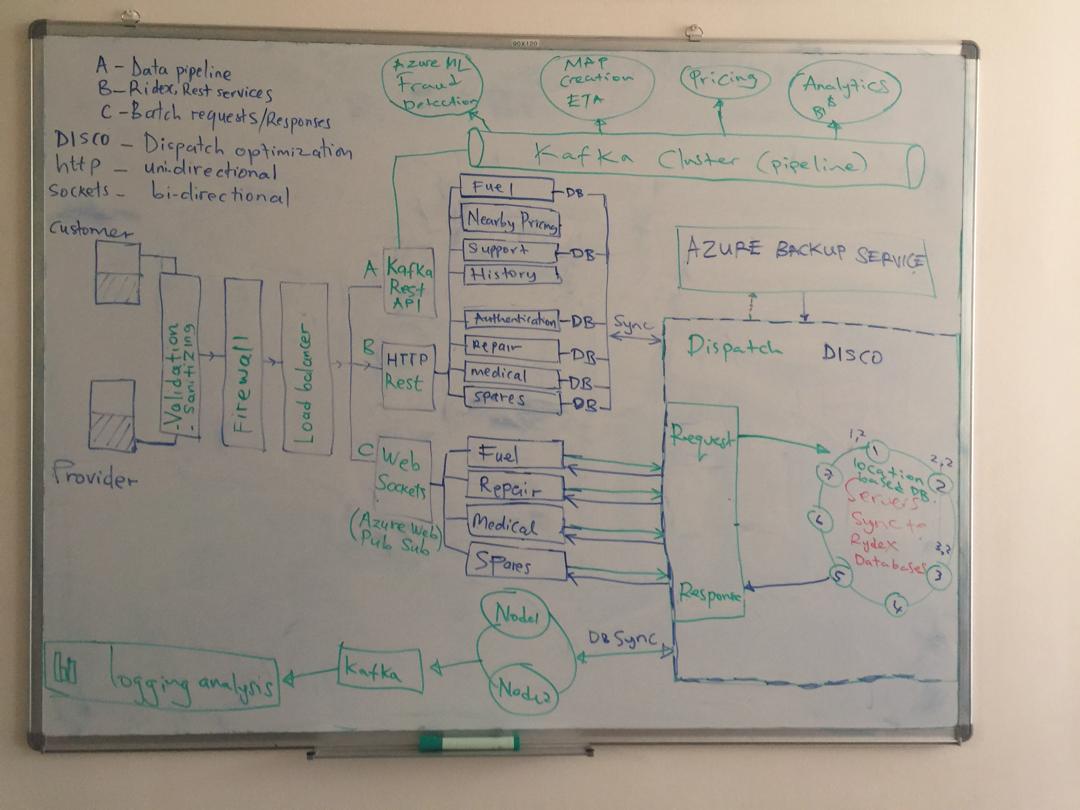 90X120
A - Data pipeline
B - Ridex, Rest services
C - Batch requests/Responses
DISCO - Dispatch optimization
http - unidirectional
Sockets - bi-directional
Azure ML
Fraud
Detection
MAP
Creation
ETA
Pricing
Analytics
&
BI
Kafka Cluster (pipeline)
Customer
Provider
-Validation
- Sanitizing
Firewall
Load balancer
A
Kafka
Rest
API
B
HTTP
Rest
C
Web
Sockets
(Azure Web
Pub Sub)
Fuel
DB
Nearby Pricing
Support
DB
History
Authentication
DB
Repair
DB
medical
DB
spares
DB
Sync
Fuel
Repair
Medical
Spares
AZURE BACKUP SERVICE
Dispatch DISCO
Request
Response
1,2
1
2,2
2
3,2
3
4
5
6
7
location
based DB.
Servers
Sync to
Rydex
Databases
DB Sync
Node1
Node2
Kafka
logging analysis